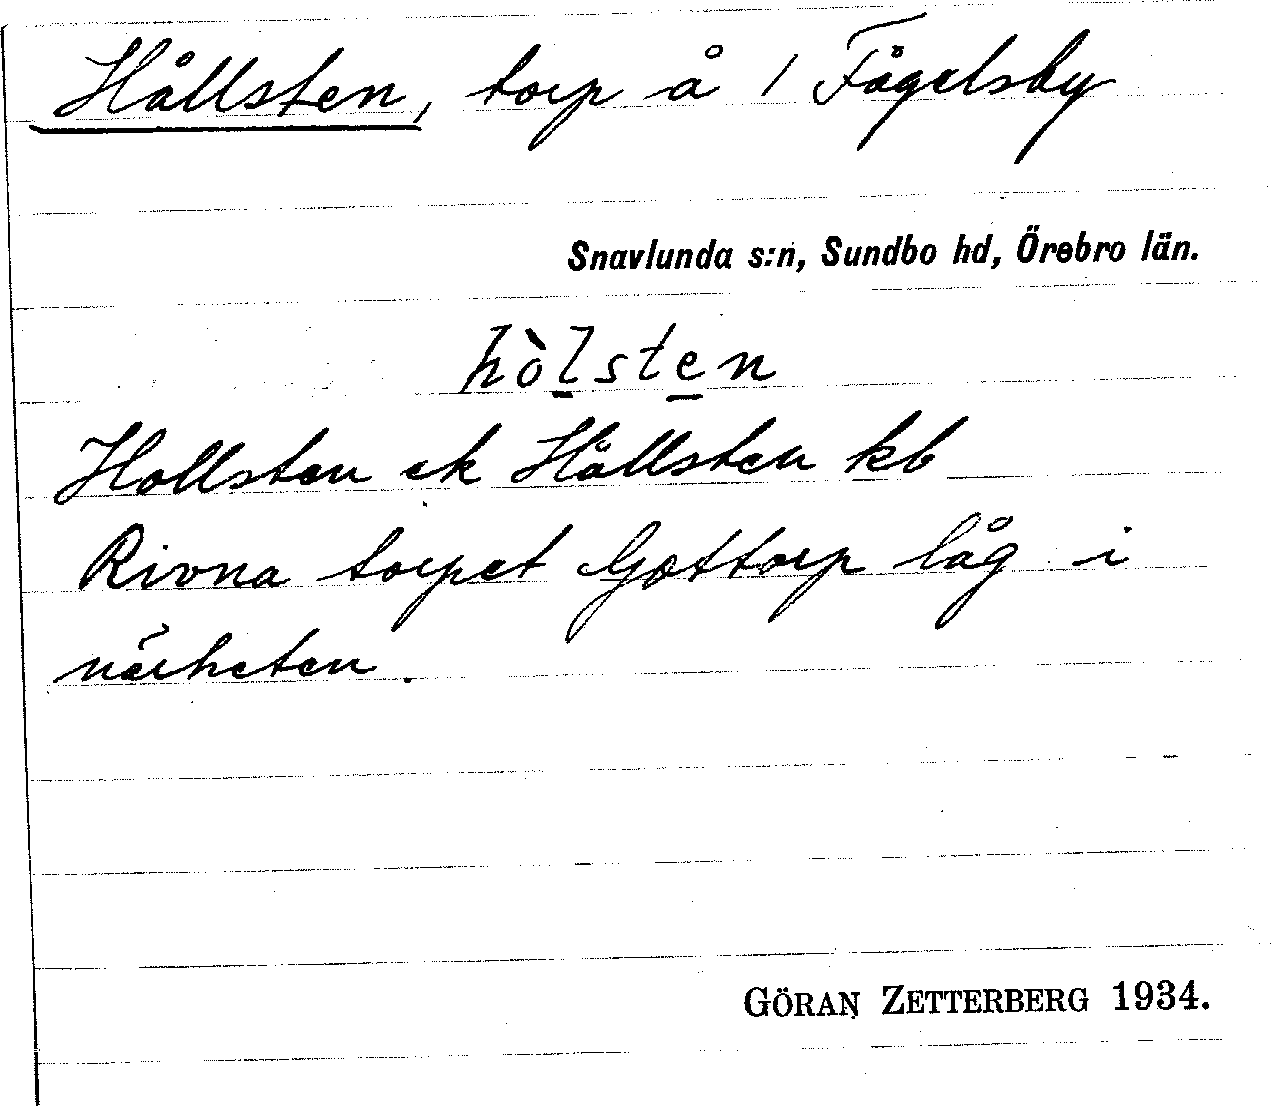 Hållsten, torp å 1 Fågelsby
Snavlunda s:n, Sundbo hd, Örebro län.
hòlsten
Hollsten ek Hållsten kb
Rivna torpet Gottorp låg i
närheten.
GÖRAN ZETTERBERG 1934.